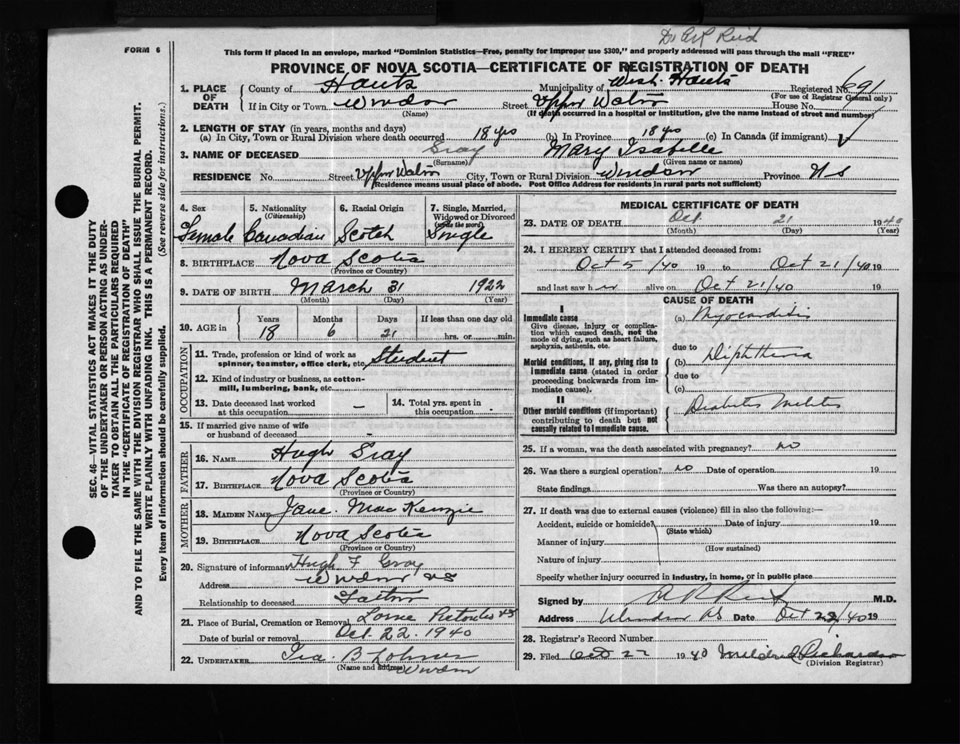 Dr A R Reid
FORM 6
This form if placed in an envelope, marked "Dominion Statistics—Free, penalty for improper use $300," and properly addressed will pass through the mail "FREE"
PROVINCE OF NOVA SCOTIA—CERTIFICATE OF REGISTRATION OF DEATH
SEC. 46—VITAL STATISTICS ACT MAKES IT THE DUTY
OF THE UNDERTAKER OR PERSON ACTING AS UNDER-
TAKER TO OBTAIN ALL THE PARTICULARS REQUIRED
IN THE "CERTIFICATE OF REGISTRATION OF DEATH"
AND TO FILE THE SAME WITH THE DIVISION REGISTRAR WHO SHALL ISSUE THE BURIAL PERMIT.
WRITE PLAINLY WITH UNFADING INK. THIS IS A PERMANENT RECORD.
Every item of information should be carefully supplied. (See reverse side for instructions.)
1. PLACE OF DEATH
County of Hants Municipality of West Hants Registered No. 691
(For use of Registrar General only)
If in City or Town Windsor Street Upper Water House No.
(Name) (If death occurred in a hospital or institution, give the name instead of street and number)
2. LENGTH OF STAY (in years, months and days)
(a) In City, Town or Rural Division where death occurred 18 yrs (b) In Province 18 yrs (c) In Canada (if immigrant)
3. NAME OF DECEASED Gray Mary Isabelle
(Surname) (Given name or names)
RESIDENCE No. Street Upper Water City, Town or Rural Division Windsor Province N S
(Residence means usual place of abode. Post Office Address for residents in rural parts not sufficient)
4. Sex 5. Nationality (Citizenship) 6. Racial Origin 7. Single, Married, Widowed or Divorced (write the word)
Female Canadian Scotch Single
8. BIRTHPLACE Nova Scotia
(Province or Country)
9. DATE OF BIRTH March 31 1922
(Month) (Day) (Year)
10. AGE in Years Months Days If less than one day old
18 6 21 hrs. or min.
OCCUPATION
11. Trade, profession or kind of work as spinner, teamster, office clerk, etc. Student
12. Kind of industry or business, as cotton-mill, lumbering, bank, etc.
13. Date deceased last worked at this occupation – 14. Total yrs. spent in this occupation -
15. If married give name of wife or husband of deceased -
FATHER
16. NAME Hugh Gray
17. BIRTHPLACE Nova Scotia
(Province or Country)
MOTHER
18. MAIDEN NAME Jane MacKenzie
19. BIRTHPLACE Nova Scotia
(Province or Country)
20. Signature of informant Hugh F Gray
Address Windsor NS
Relationship to deceased Father
21. Place of Burial, Cremation or Removal Lorne Pictou Co NS
Date of burial or removal Oct. 22. 1940
22. UNDERTAKER Ira. B Lohnes
(Name and address) Windsor
MEDICAL CERTIFICATE OF DEATH
23. DATE OF DEATH Oct. 21 1940
(Month) (Day) (Year)
24. I HEREBY CERTIFY that I attended deceased from:
Oct 5 /40 19 to Oct 21/40 19
and last saw h er alive on Oct 21/40 19
CAUSE OF DEATH
I
Immediate cause (a) Myocarditis
Give disease, injury or complica-
tion which caused death, not the
mode of dying, such as heart failure,
asphyxia, asthenia, etc.
due to
Morbid conditions, if any, giving rise to (b) Diphtheria
immediate cause (stated in order
proceeding backwards from im-
mediate cause).
due to
(c)
II
Other morbid conditions (if important) Diabetes Melitus
contributing to death but not
causally related to immediate cause.
25. If a woman, was the death associated with pregnancy? no
26. Was there a surgical operation? no Date of operation 19
State findings Was there an autopsy?
27. If death was due to external causes (violence) fill in also the following:—
Accident, suicide or homicide? Date of injury 19
(State which)
Manner of injury
(How sustained)
Nature of injury
Specify whether injury occurred in industry, in home, or in public place
Signed by A R Reid M.D.
Address Windsor NS Date Oct 22/40 19
28. Registrar's Record Number
29. Filed Oct 22 1940 Mildred Richardson
(Division Registrar)